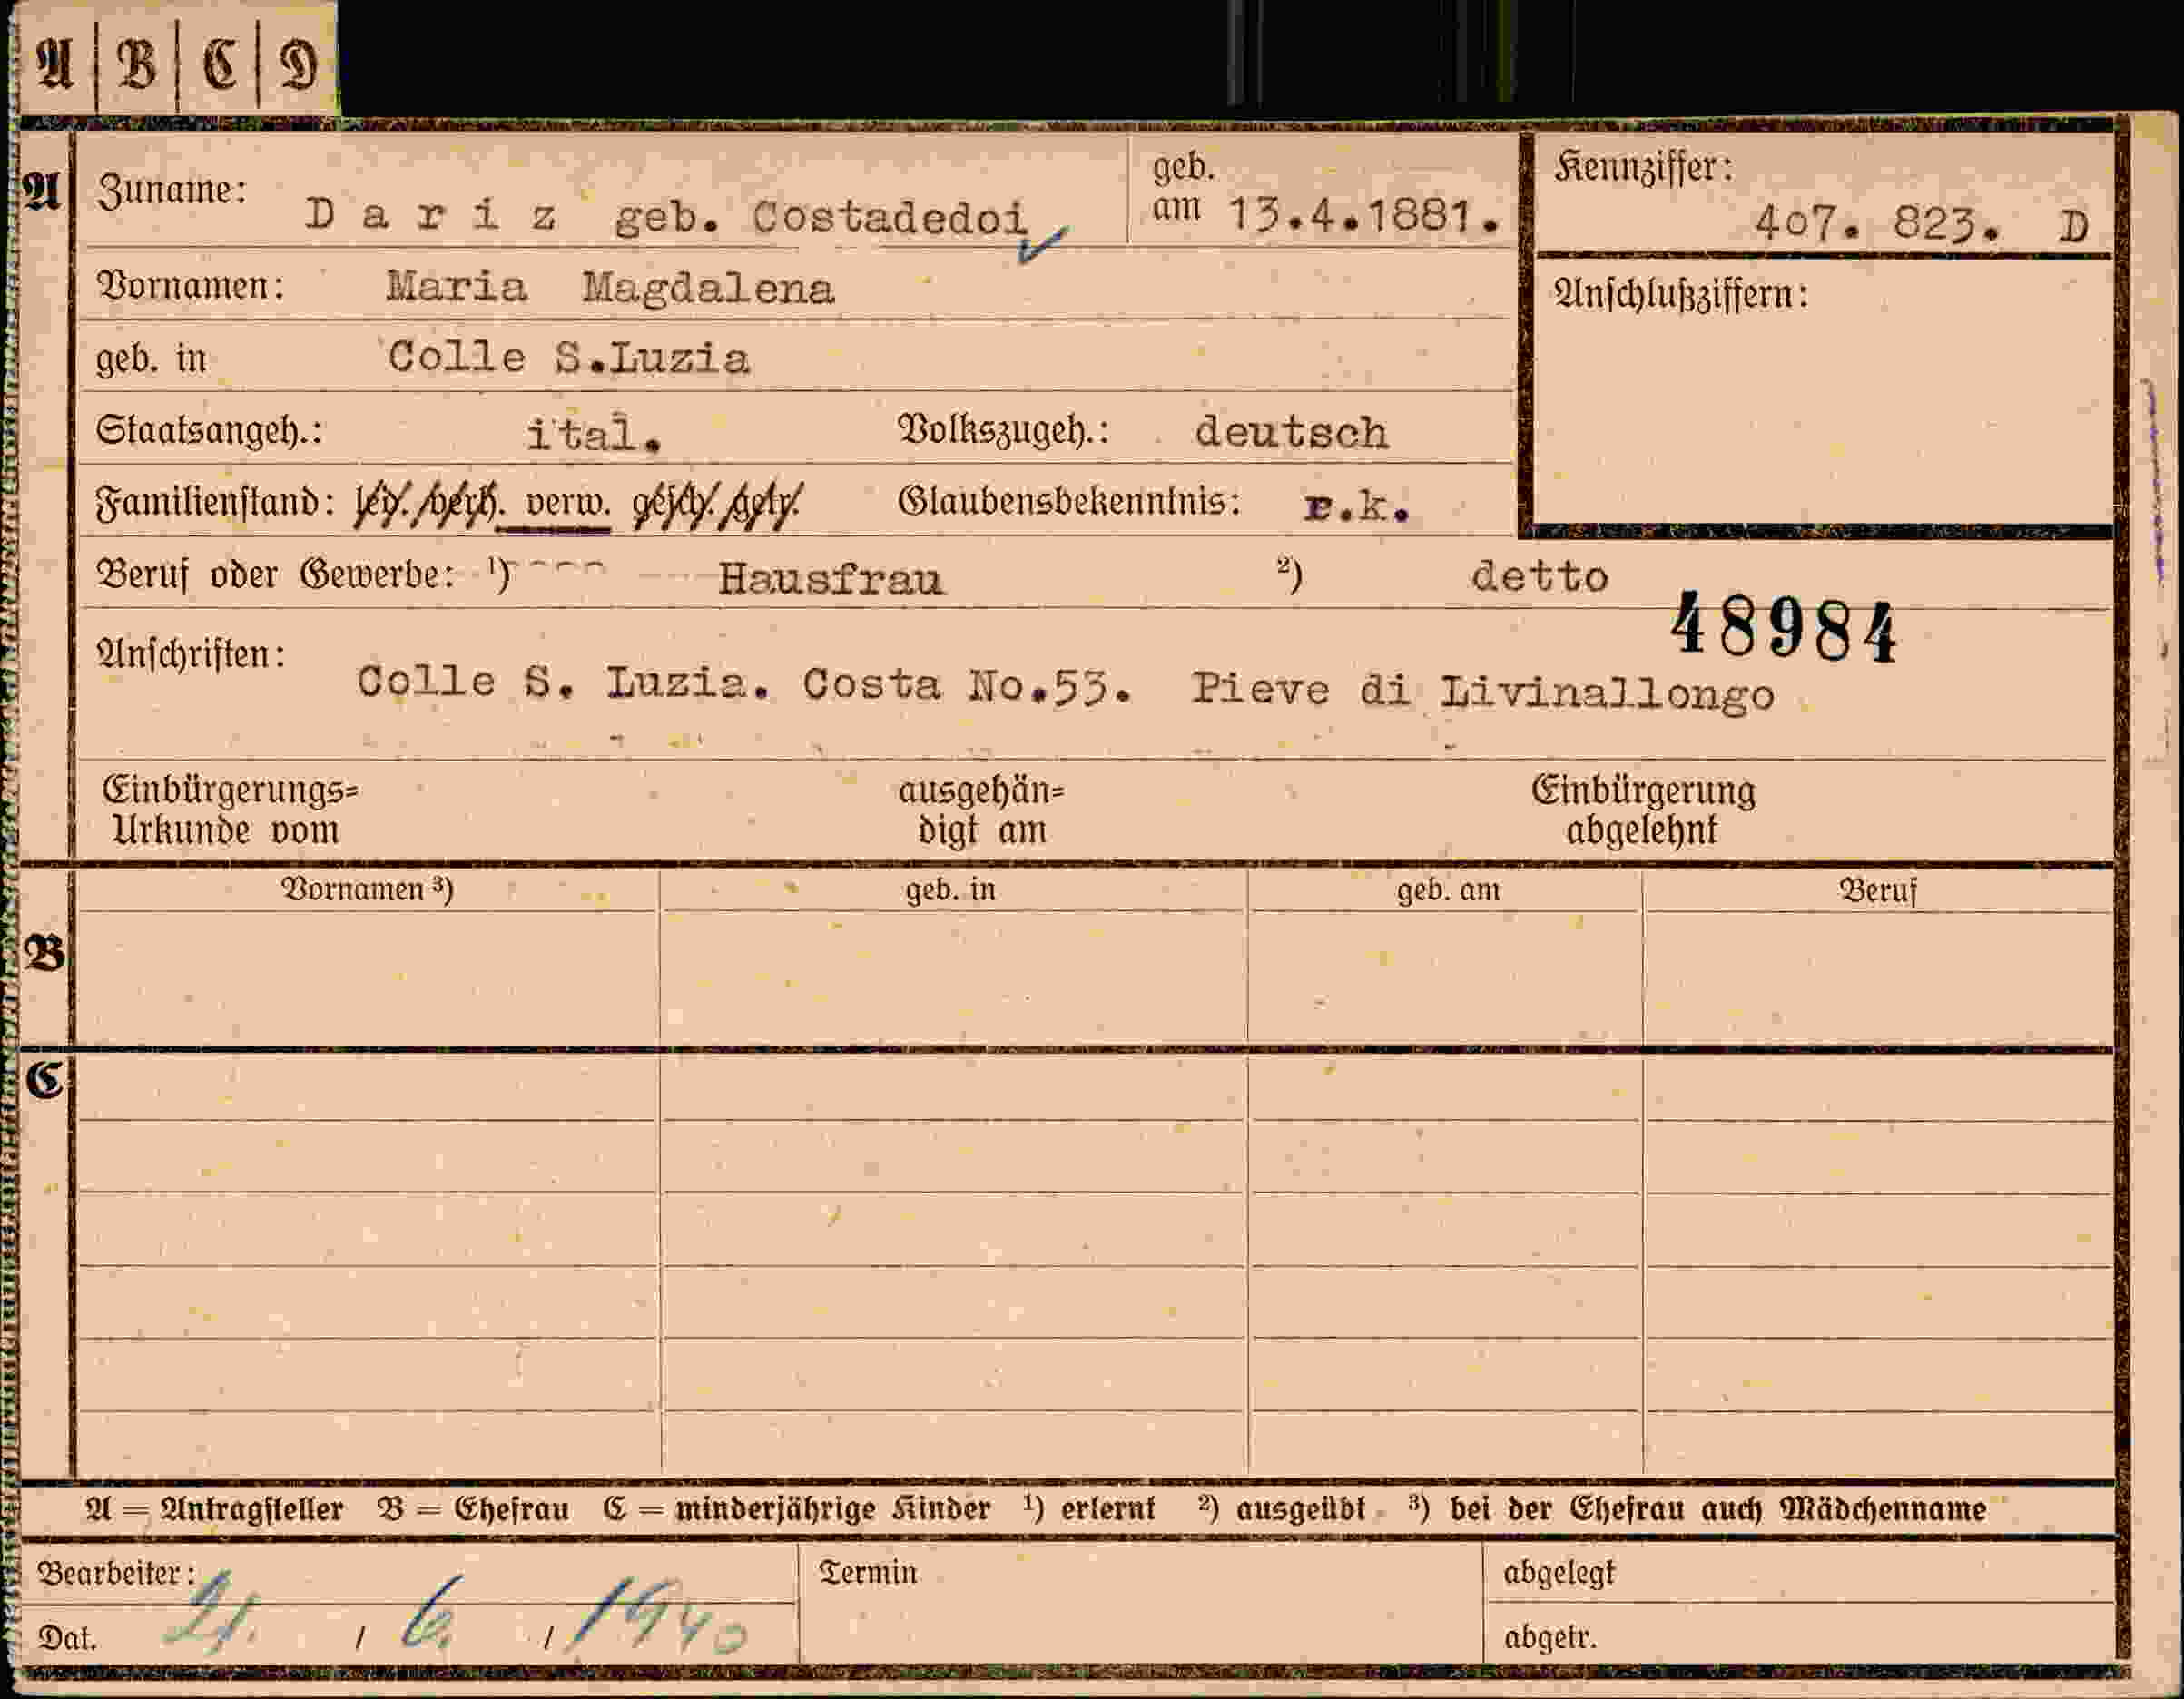 A | B | C | D
A
Zuname: Dariz geb. Costadedoi
geb. am 13.4.1881.
Kennziffer: 407. 823. D
Vornamen: Maria Magdalena
Anschlußziffern:
geb. in Colle S.Luzia
Staatsangeh.: ital. Volkszugeh.: deutsch
Familienstand: led./verh. verw. gesch./getr. Glaubensbekenntnis: r.k.
Beruf oder Gewerbe: ¹) Hausfrau ²) detto
48984
Anschriften: Colle S. Luzia. Costa No.53. Pieve di Livinallongo
Einbürgerungs= ausgehän= Einbürgerung
Urkunde vom digt am abgelehnt
Vornamen ³) geb. in geb. am Beruf
B
C
A = Antragsteller B = Ehefrau C = minderjährige Kinder ¹) erlernt ²) ausgeübt ³) bei der Ehefrau auch Mädchenname
Bearbeiter: Termin abgelegt
Dat. 21. / 6. / 1940 abgetr.